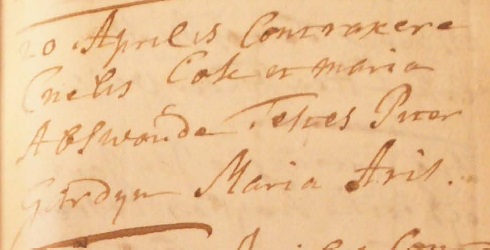 20 Aprilis Contraxere
Cnelis Cok et maria
Abswoude Testes Piter
Gordyn Maria Aris.